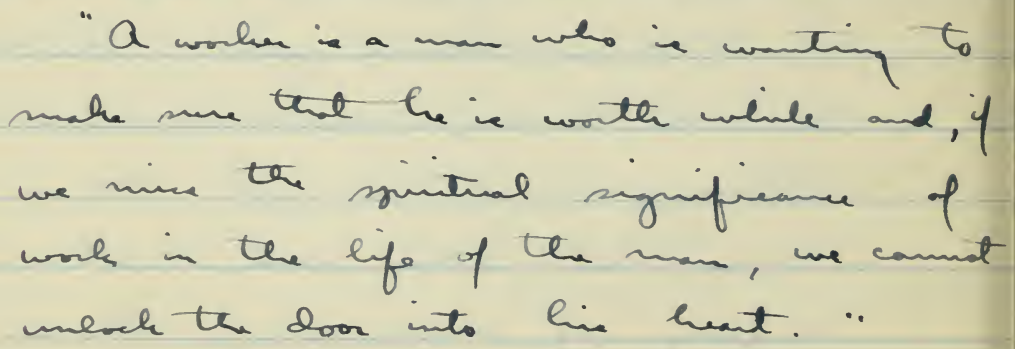 "A worker is a man who is wanting to
make sure that he is worth while and, if
we miss the spiritual significance of
work in the life of the man, we cannot
unlock the door into his heart."